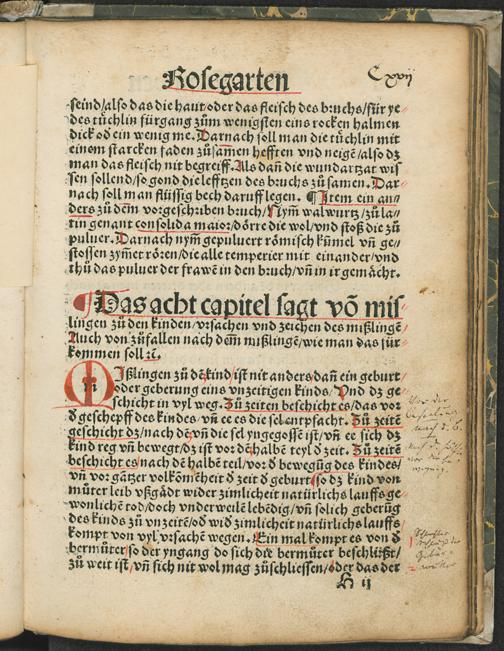 Rosegarten
Cxvij
seind/also das die haut oder das fleisch des bruchs/für ye⸗
des tüchlin fürgang zům wenigsten eins rocken halmen
dick od ein wenig me. Darnach soll man die tüchlin mit
einom starcken faden zůsamen hefften vnd neigē/also dz
man das fleisch nit begreiff. Als dañ die wundartzat wis
sen sollend/so gond die lefftzen des bruchs zů samen. Dar⸗
nach soll man flüssig bech daruff legen. ¶ Item ein an⸗
ders zů dēm vorgeschriben bruch/Nym̄ walwurtz/zů la⸗
tin genant consolida maior/dörre die wol/vnd stoß die zů
puluer. Darnach nym̄ gepuluert römisch kūmel vñ ge⸗
stossen zymet rören/die alle temperier mit einander/vnd
thů das puluer der frawē in den bruch/vñ in ir gemācht.
¶ Das acht capitel sagt vō miß
lingen zů den kinden/vrsachen vnd zeichen des mißlingē
Auch von zůfallen nach dem mißlingē/wie man das für
kommen soll ꝛc.
MIßlingen zů dē kind/ist nit anders dañ ein geburt
oder geberung eins vnzeitigen kinds/Vnd dz ge⸗
schicht in vyl weg. Zů zeiten beschicht es/das vor
d geschepff des kindes/vñ ee es die sel entpfacht. Zů zeitē
geschicht dz/nach dē vñ die sel yngegossē ist/vñ ee sich dz
kind reg vñ bewegt/dz ist vor dē halbē teyl d zeit. Zů zeitē
beschicht es/nach dē halbē teil/vor d bewegūg des kindes/
vñ vor gātzer volkōmēheit d zeit d geburt/so dz kind von
můter leib vßgādt wider zimlicheit natürlichs lauffs ge⸗
wonlichē tod/doch vnderweilē lebēdig/vñ solich geberūg
des kinds zů vnzeitē/od wid zimlicheit natürlichs lauffs
kompt von vyl vrsachē wegen. Ein mal kompt es von d
bermůter/so der yngang do sich die bermůter beschlüßt/
zů weit ist/vñ sich nit wol mag zůschliessen/oder das der
H ij